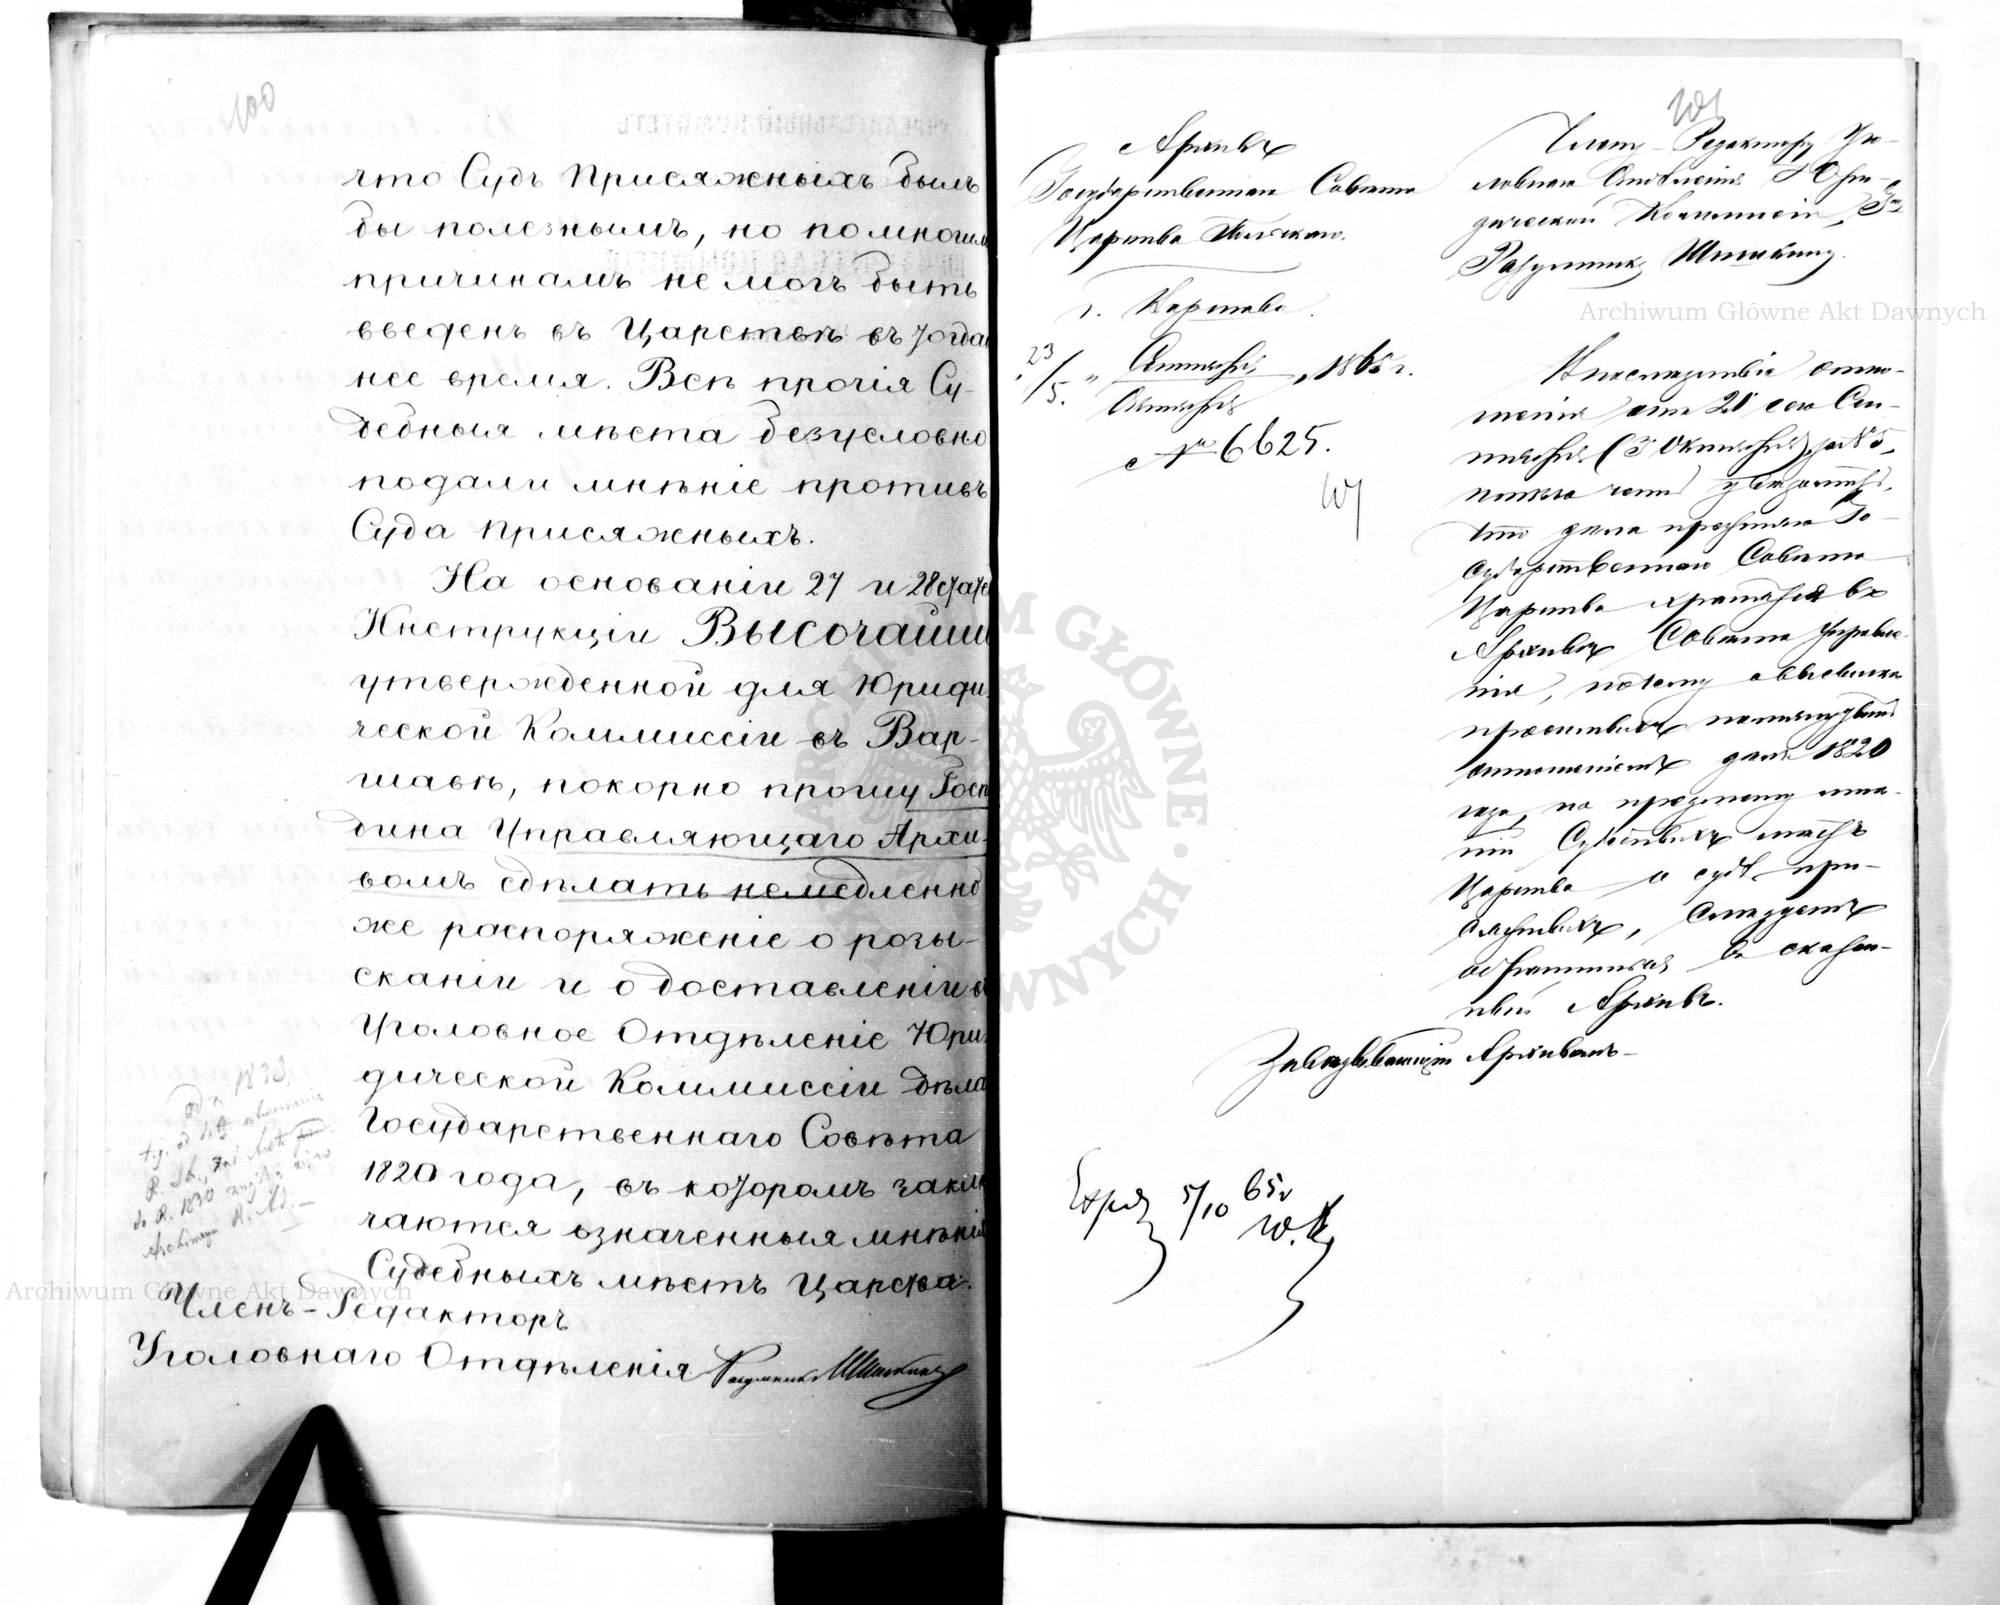 100
что Судъ Присяжныхъ былъ
бы полезнымъ, но по многимъ
причинамъ не могъ быть
введенъ въ Царствѣ въ тогдаш
нее время. Всѣ прочія Су-
дебныя мѣста безусловно
подали мнѣніе противъ
Суда Присяжныхъ.
На основаніи 27 и 28 статей
Инструкціи ВЫСОЧАЙШЕ
утвержденной для Юриди
ческой Коммиссіи въ Вар-
шавѣ, покорно прошу Госпо
дина Управляющаго Архи-
вомъ сдѣлать немедленно
же распоряженіе о розы-
сканіи и о доставленіи въ
Уголовное Отдѣленіе Юри
дической Коммиссіи дѣла
Государственнаго Совѣта
1820 года, въ которомъ заклю
чаются означенныя мнѣнія
Судебныхъ мѣстъ Царства.
Членъ-Редакторъ
Уголовнаго Отдѣленія Разумникъ Шишкинъ
101
Архивъ
Государственнаго Совѣта
Царства Польскаго.
г. Варшава.
23/5. Сентября/Октября 1865 г.
№ 6625.
Члену-Редактору Уго-
ловнаго Отдѣленія Юри-
дической Коммиссіи, Гну
Разумнику Шишкину.
Въ послѣдствіе отно-
шенія отъ 21 сего Сен-
тября (3 Октября) за № 5,
имѣю честь увѣдомить,
что дѣла прежняго Го-
сударственнаго Совѣта
Царства хранятся въ
Архивѣ Совѣта Управле-
нія, почему о высылкѣ
просимыхъ
отношеніемъ дѣлъ 1820
года, по предмету мнѣ-
ній Судебныхъ мѣстъ
Царства о судѣ при-
сяжныхъ, слѣдуетъ
обратиться въ сказан-
ный Архивъ.
Завѣдывающій Архивомъ
5/10 65
Archiwum Główne Akt Dawnych
Archiwum Główne Akt Dawnych
ARCHIWUM GŁÓWNE AKT DAWNYCH